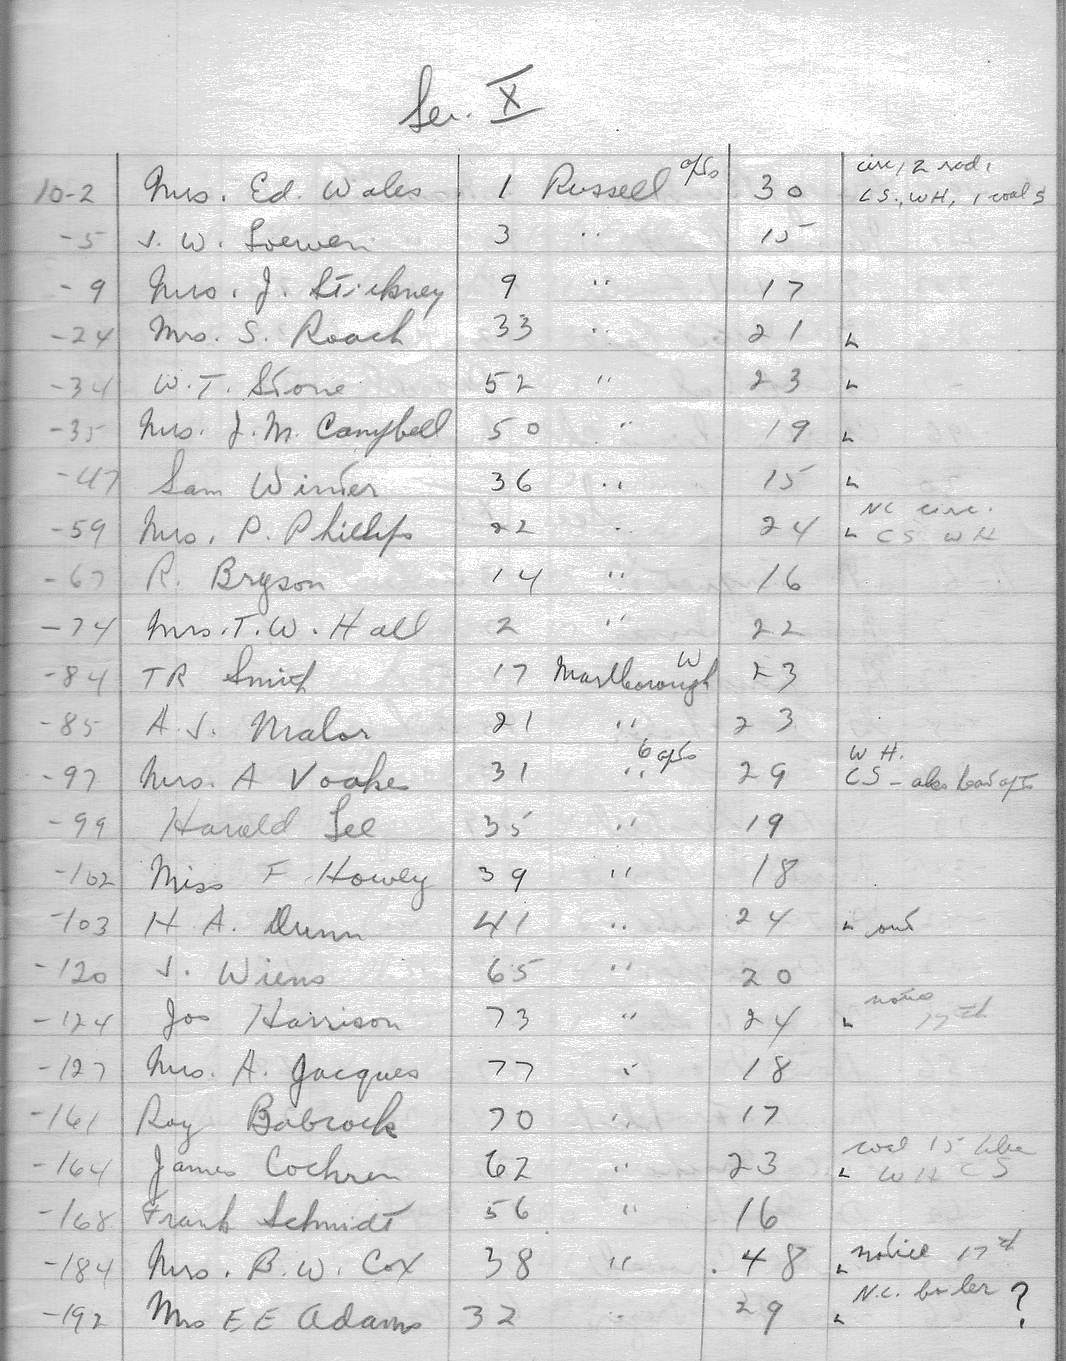 Ser. X
10-2 Mrs. Ed. Wales 1 Russell apts 30 circ, 2 rad,
CS., WH, 1 coal S
-5 J. W. Loewen 3 " 15
-9 Mrs. J. Stickney 9 " 17
-24 Mrs. S. Roach 33 " 21 L
-34 W. T. Stone 52 " 23 L
-35 Mrs. J. M. Campbell 50 " 19 L
-47 Sam Winter 36 " 15 L
NC circ.
-59 Mrs. P. Phillips 22 " 24 L CS WH
-67 R. Bryson 14 " 16
-74 Mrs. T. W. Hall 2 " 22
-84 TR Smith 17 Marlborough W 23
-85 A. J. Malor 21 " 23
6 apts WH.
-97 Mrs. A Voakes 31 " 29 CS -
-99 Harold Lee 35 " 19
-102 Miss F Howey 39 " 18
-103 H A. Dunn 41 " 24 L out
-120 J. Wiens 65 " 20
-124 Jos Harrison 73 " 24 L 17th
-127 Mrs. A. Jacques 77 " 18
-161 Roy Babcock 70 " 17
-164 James Cochren 62 " 23 L WH CS
-168 Frank Schmidt 56 " 16
-184 Mrs. B. W. Cox 38 " .48 L notice 17th
N.C. boiler ?
-192 Mrs E E Adams 32 " 29 L